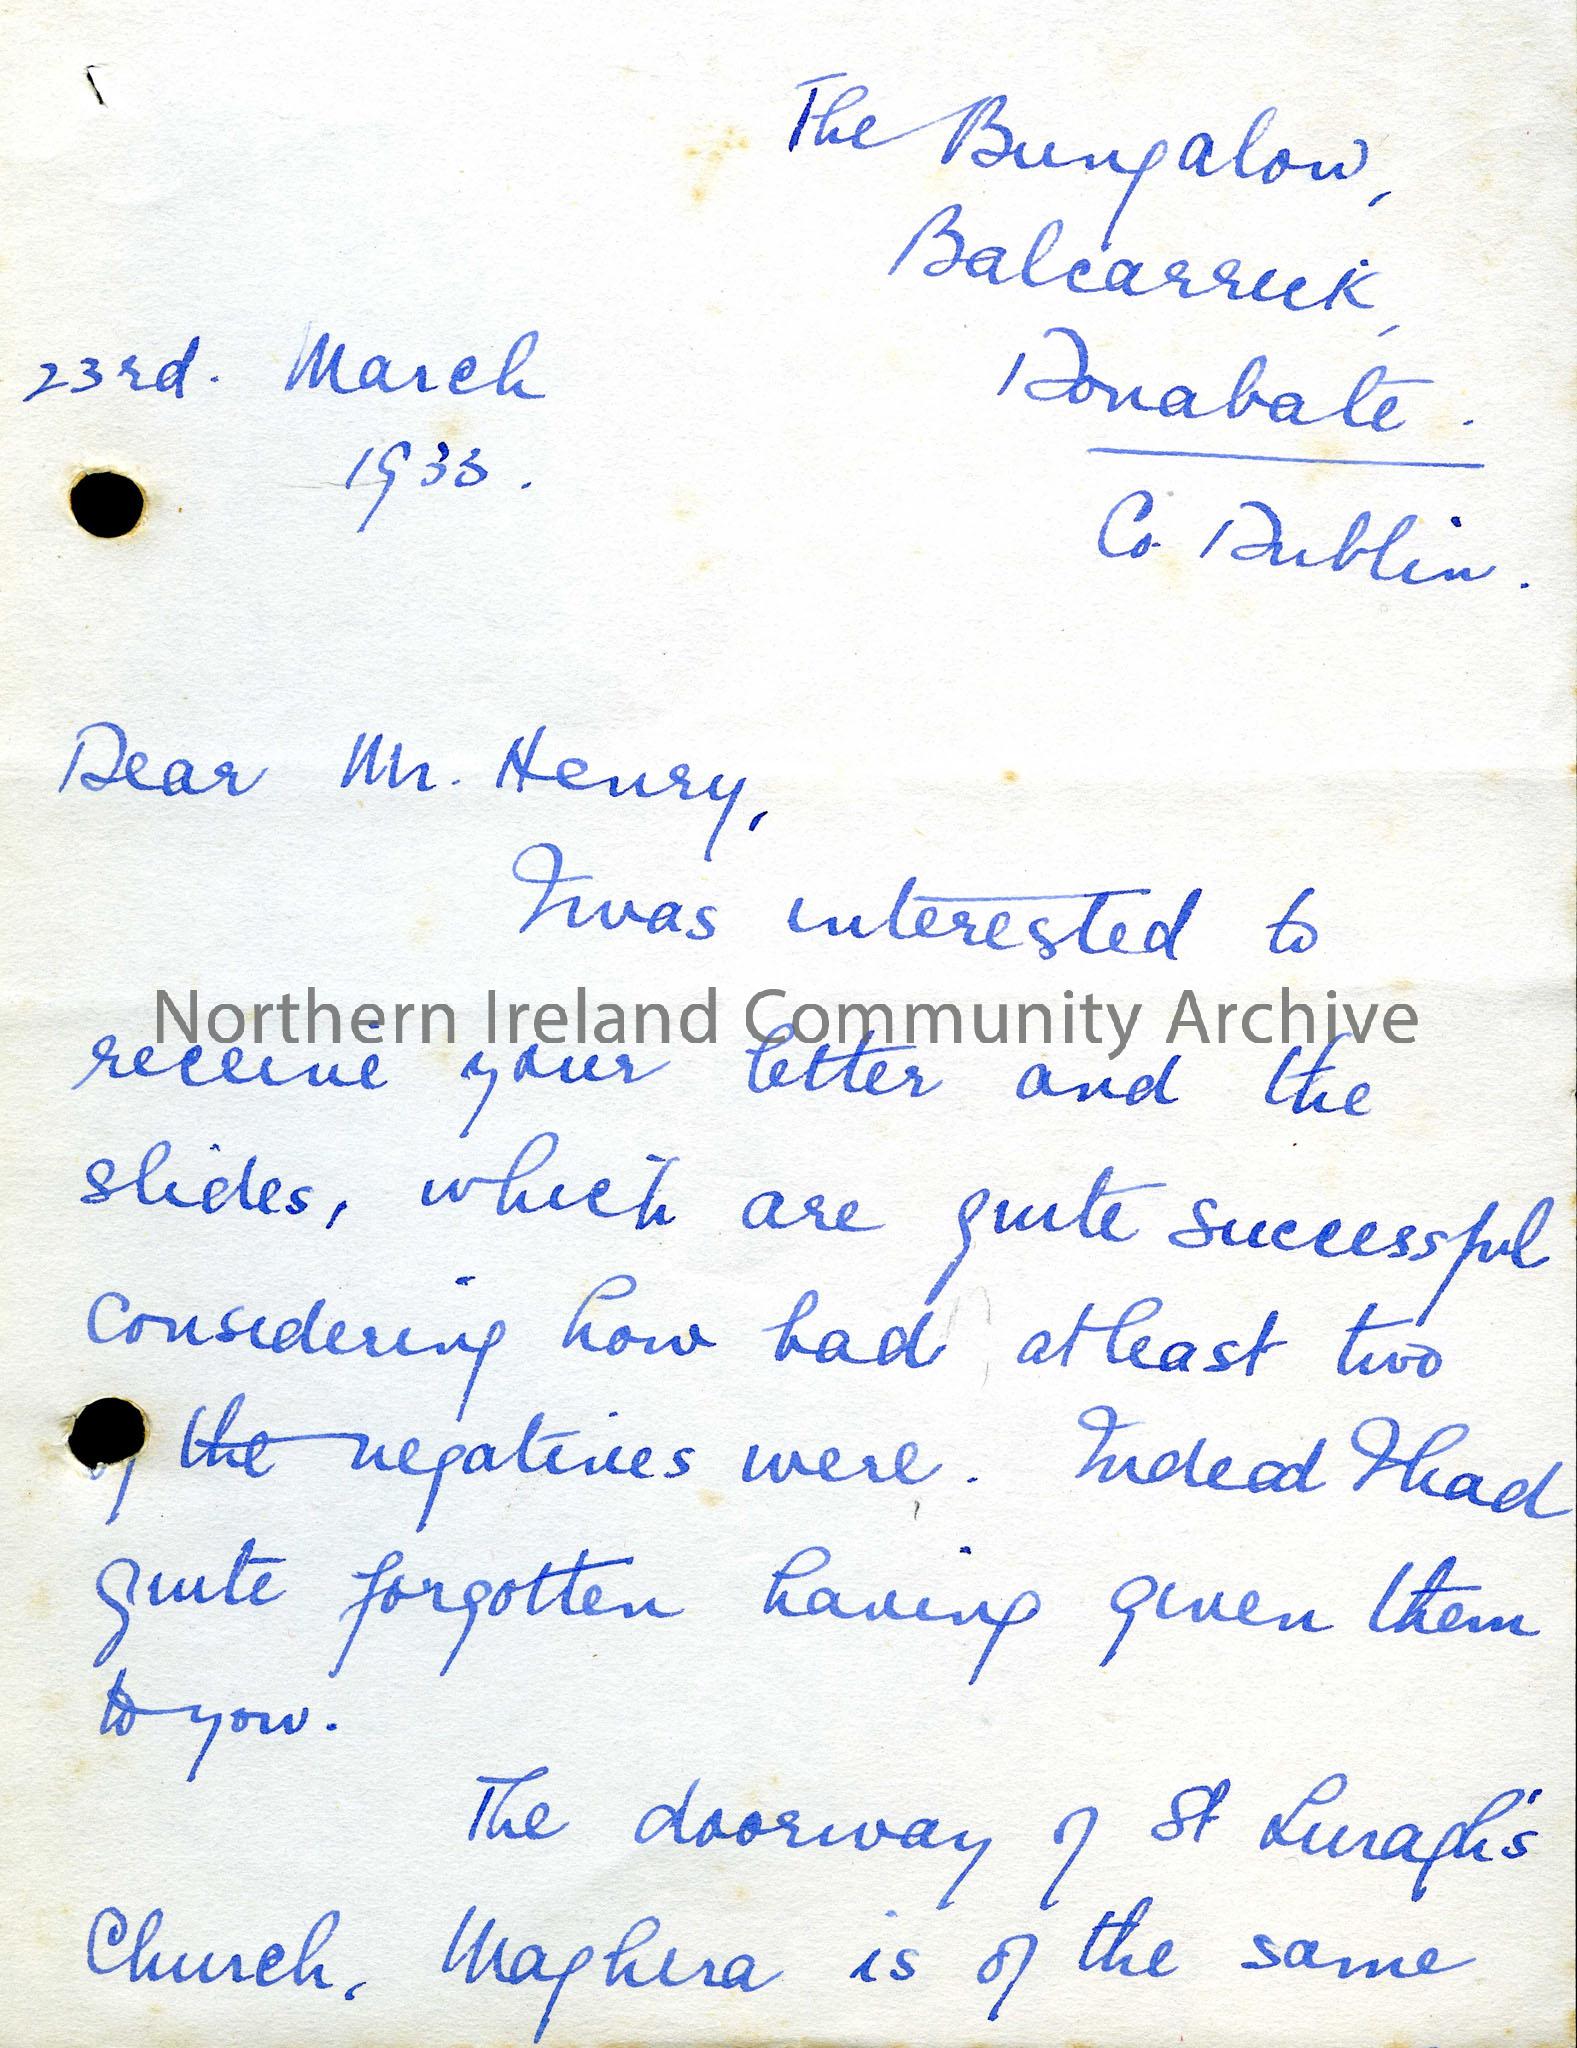 The Bungalow,
Balcarrick,
Donabate.
Co. Dublin.
23rd. March
1933.
Dear Mr. Henry,
I was interested to
Northern Ireland Community Archive
receive your letter and the
slides, which are quite successful
considering how bad at least two
of the negatives were. Indeed I had
quite forgotten having given them
to you.
The doorway of St Luragh's
Church, Maghera is of the same